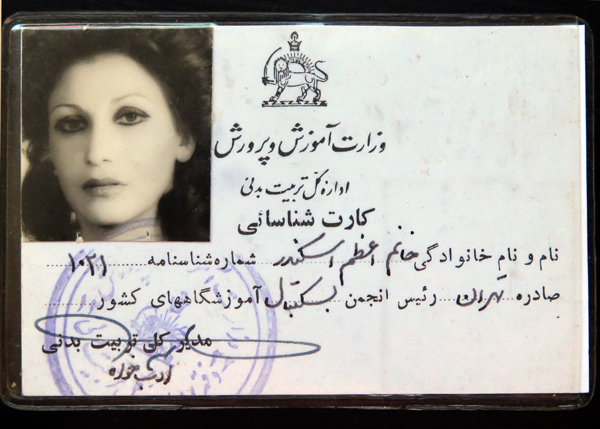 وزارت آموزش و پرورش
اداره کل تربیت بدنی
کارت شناسائی
نام و نام خانوادگی خانم اعظم اسکندر شماره شناسنامه ۱۰۲۱
صادره تهران رئیس انجمن بسکتبال آموزشگاههای کشور
مدیر کل تربیت بدنی